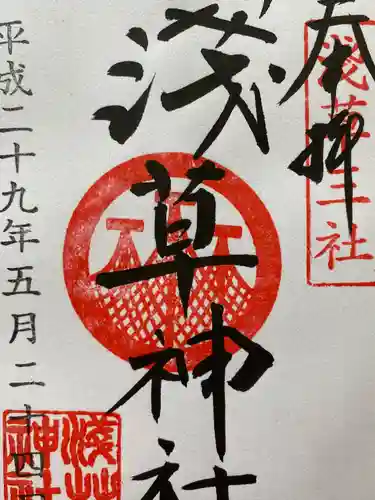 奉拝
浅草三社
浅草神社
平成二十九年五月二十四日
浅草神社